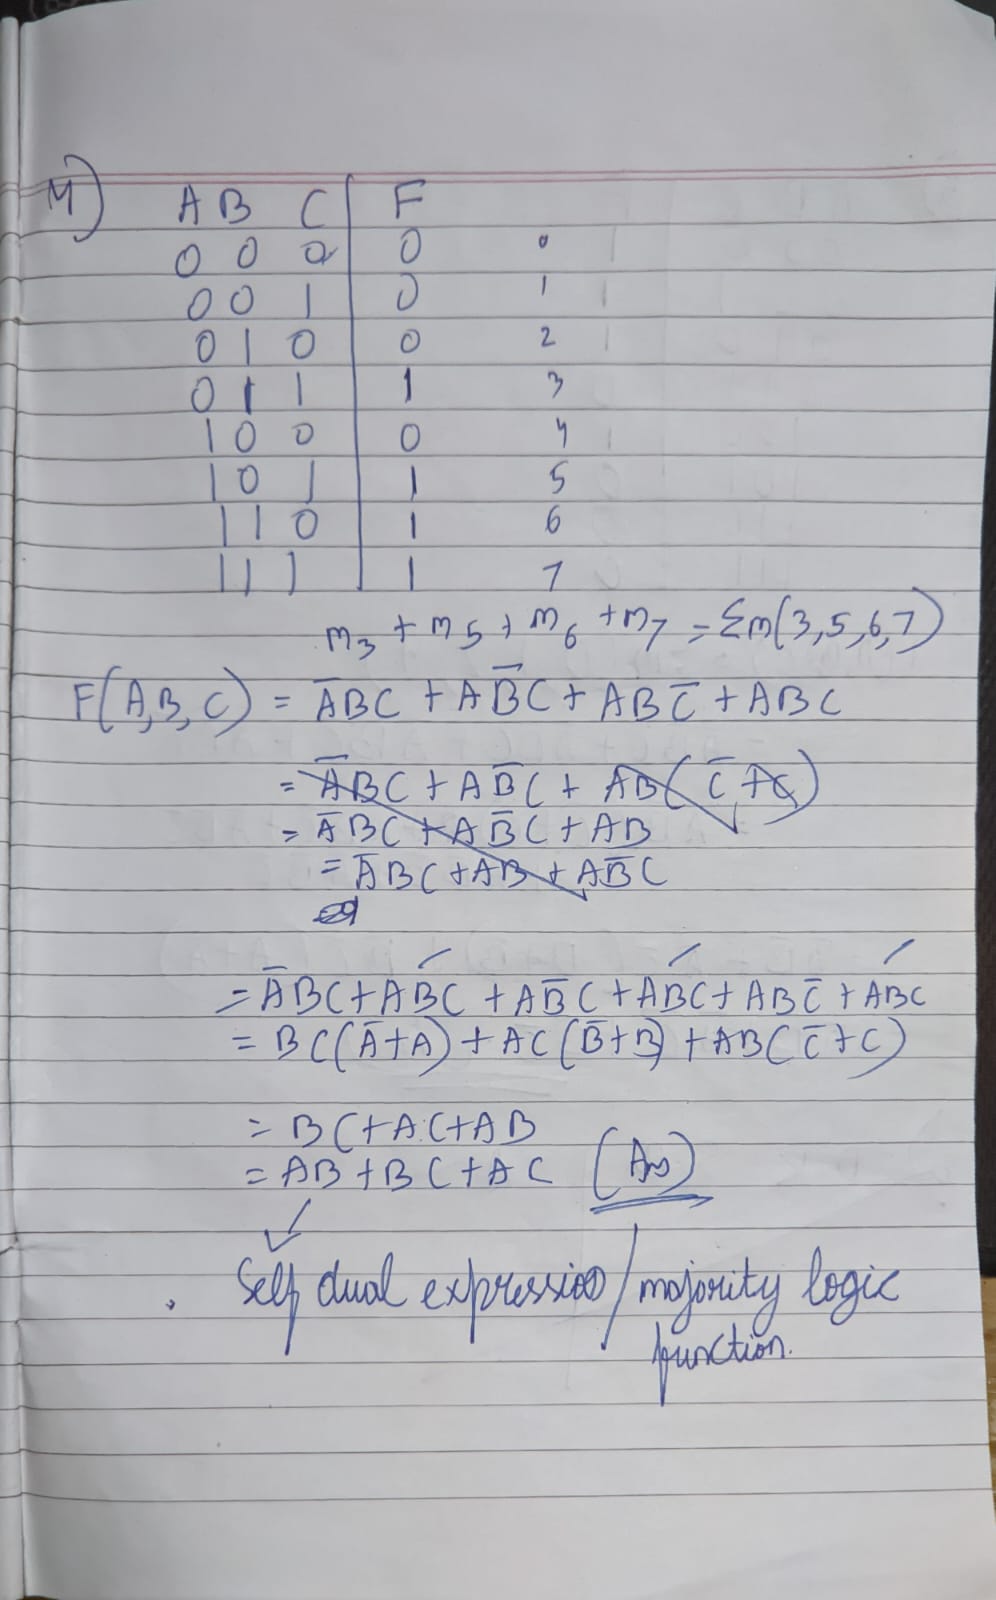 4)
A B C F
0 0 0 0 0
0 0 1 0 1
0 1 0 0 2
0 1 1 1 3
1 0 0 0 4
1 0 1 1 5
1 1 0 1 6
1 1 1 1 7
m₃ + m₅ + m₆ + m₇ = Σm(3,5,6,7)
F(A,B,C) = A̅BC + AB̅C + ABC̅ + ABC
= A̅BC + AB̅C + AB(C̅+C)
= A̅BC + AB̅C + AB
= A̅BC + AB + AB̅C
= A̅BC + ABC + AB̅C + ABC + ABC̅ + ABC
= BC(A̅+A) + AC(B̅+B) + AB(C̅+C)
= BC+AC+AB
= AB+BC+AC (Ans)
Self dual expression / majority logic
function.